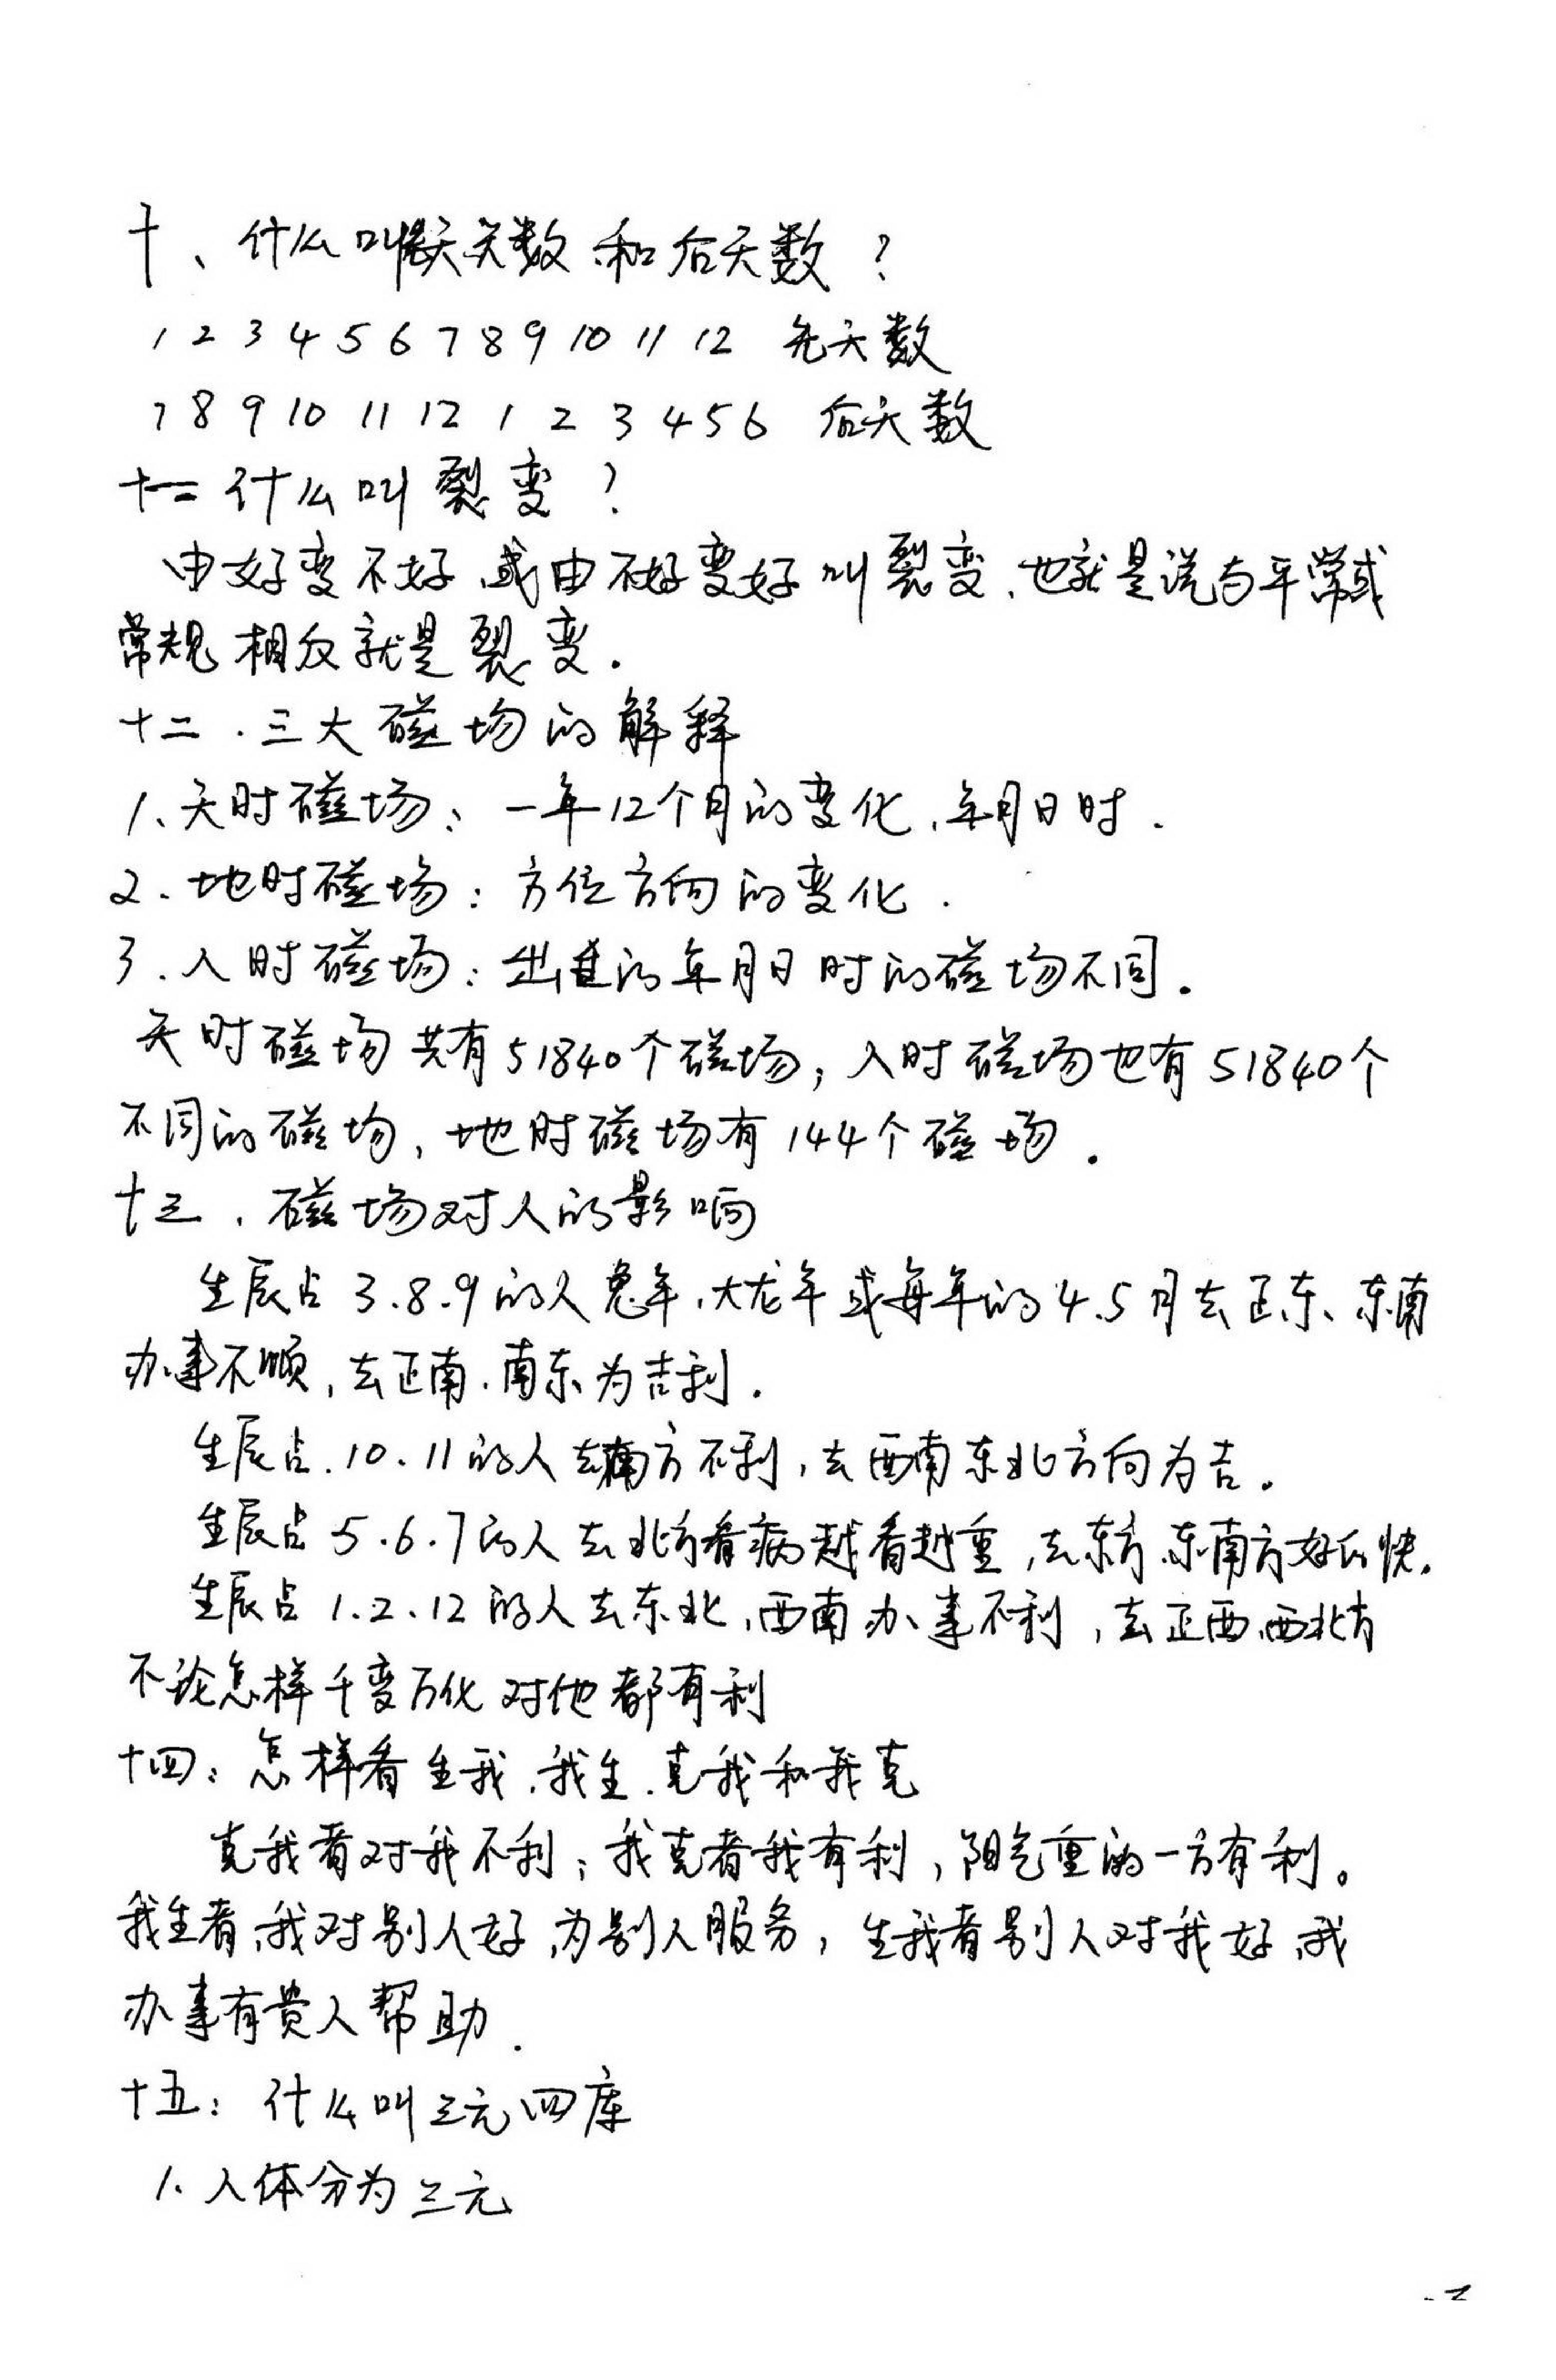 十、什么叫先天数和后天数？
1 2 3 4 5 6 7 8 9 10 11 12 先天数
7 8 9 10 11 12 1 2 3 4 5 6 后天数
十一 什么叫裂变？
由好变不好、或由不好变好叫裂变、也就是说与平常或
常规相反就是裂变.
十二.三大磁场的解释
1、天时磁场：一年12个月的变化、年月日时.
2、地时磁场：方位方向的变化.
3.人时磁场：出生的年月日时的磁场不同.
天时磁场共有51840个磁场；人时磁场也有51840个
不同的磁场，地时磁场有144个磁场.
十三、磁场对人的影响
生辰占3.8.9的人兔年、大龙年或每年的4.5月去正东、东南
办事不顺，去正南.南东为吉利.
生辰占.10.11的人去南方不利，去西南东北方向为吉.
生辰占5.6.7的人去北方看病越看越重，去东方、东南方好的快.
生辰占1.2、12的人去东北、西南办事不利，去正西、西北方
不论怎样千变万化对他都有利
十四：怎样看生我、我生、克我和我克
克我者对我不利；我克者我有利，阳气重的一方有利。
我生者、我对别人好、为别人服务，生我者别人对我好、我
办事有贵人帮助.
十五：什么叫三元四库
1.人体分为三元